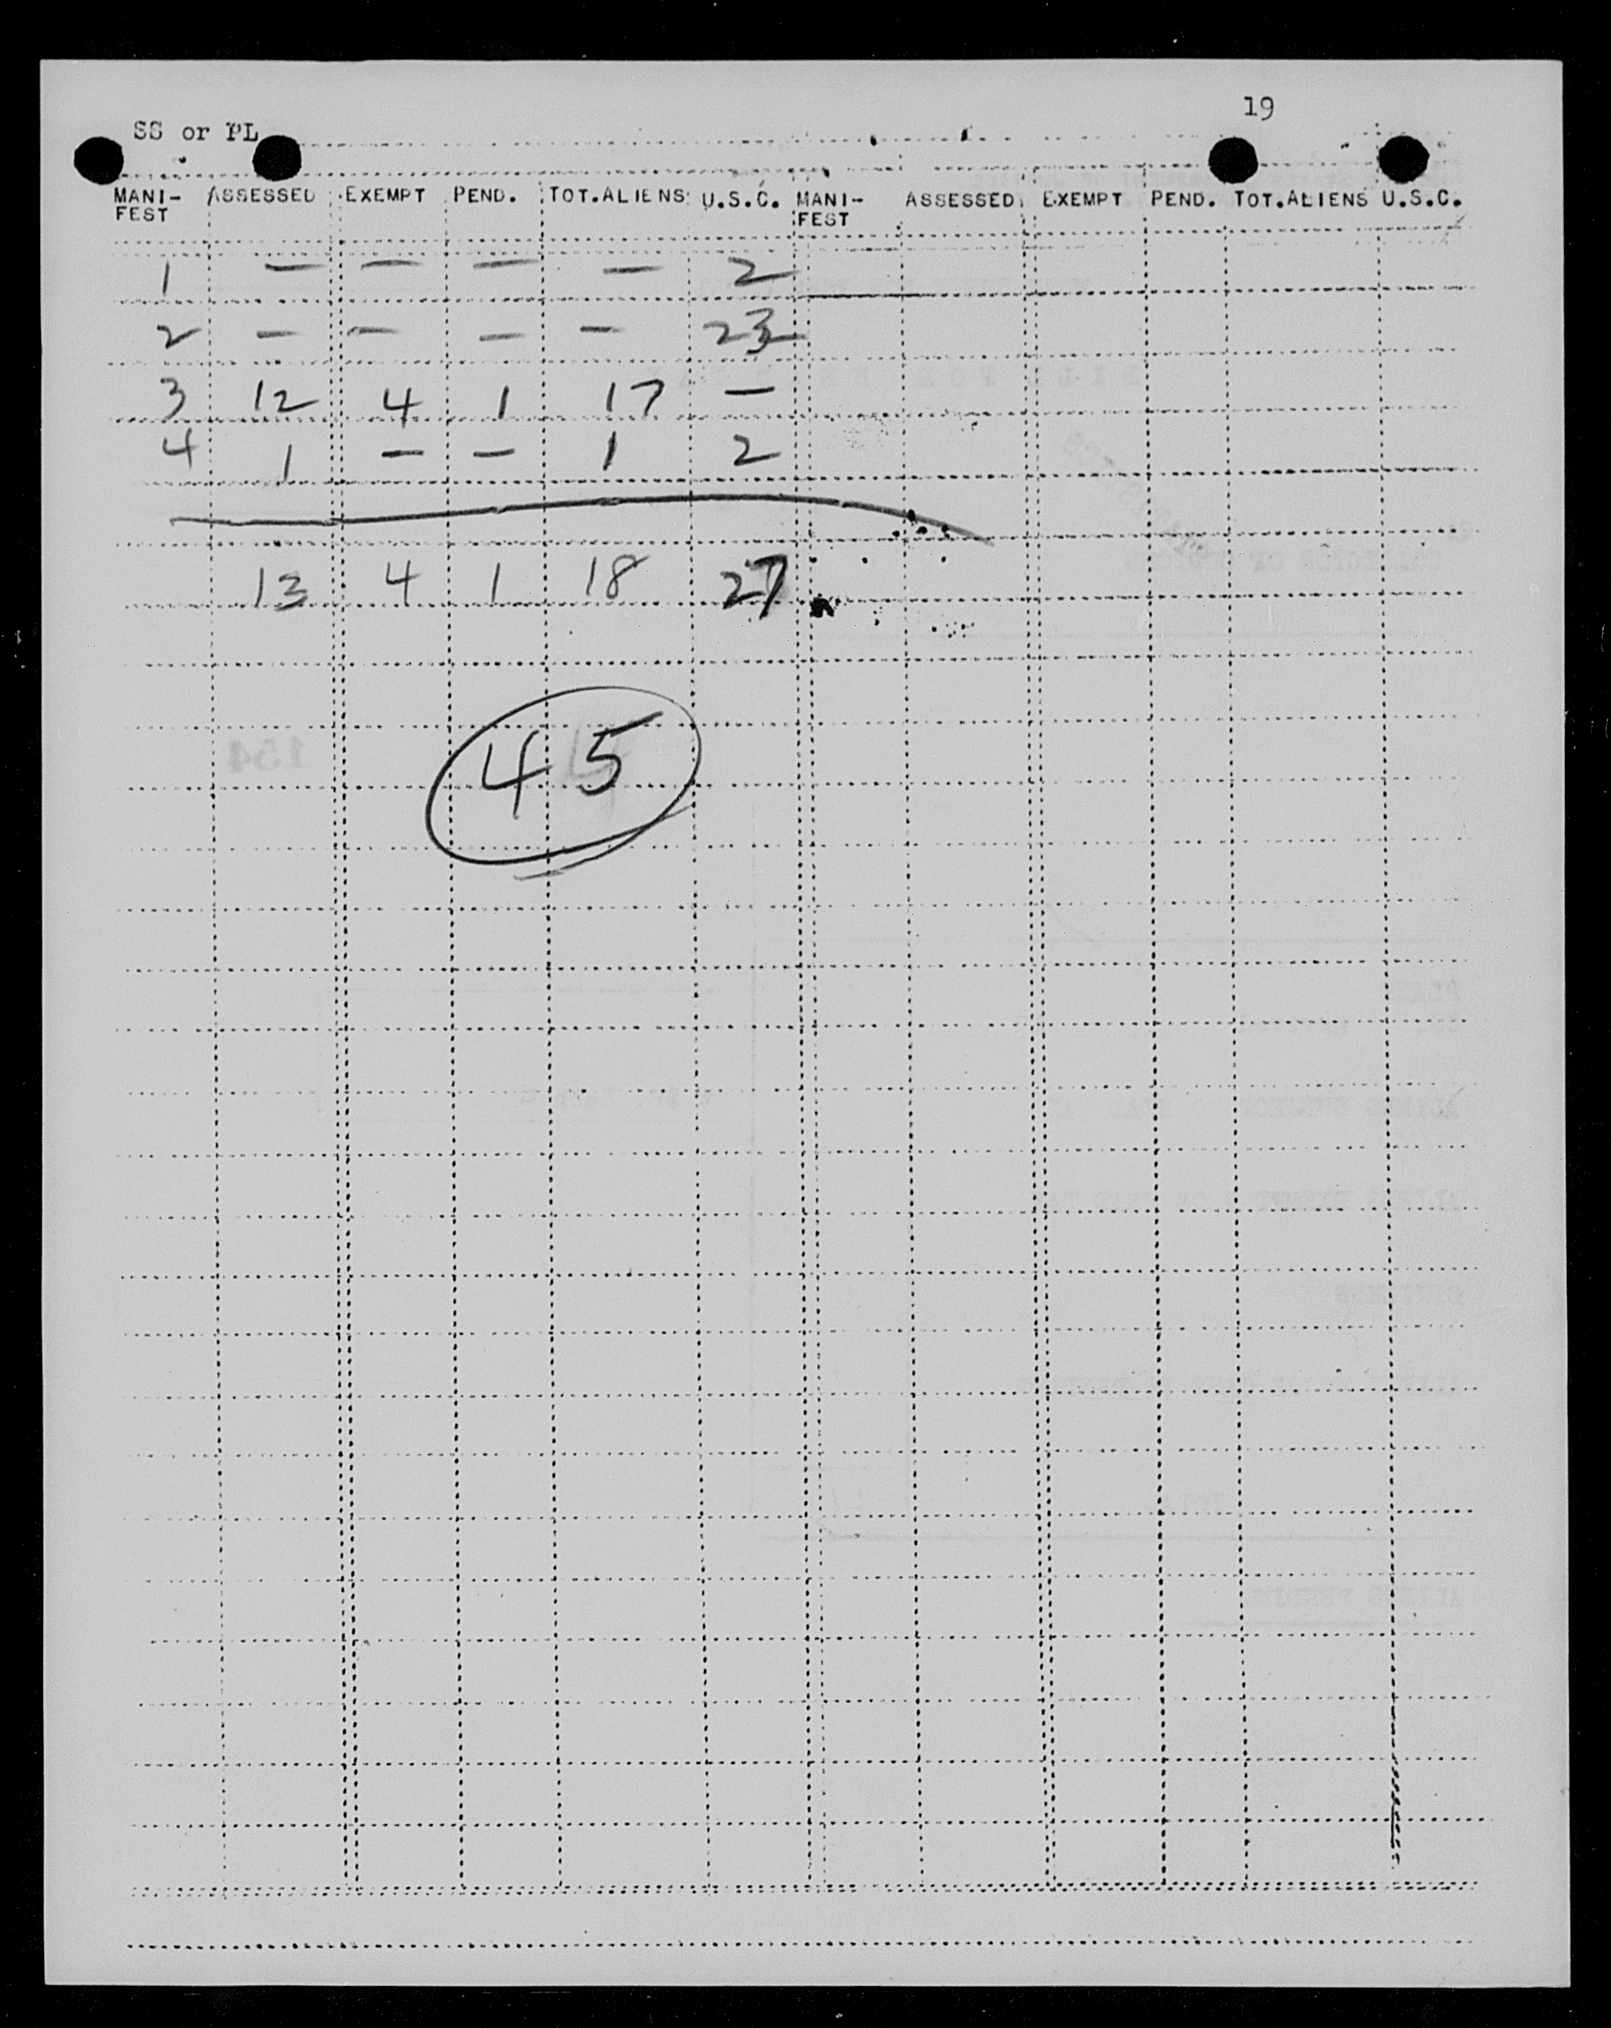 19
SS or PL
MANI-FEST ASSESSED EXEMPT PEND. TOT.ALIENS U.S.C. MANI-FEST ASSESSED EXEMPT PEND. TOT.ALIENS U.S.C.
1 — — — — 2
2 — — — — 23
3 12 4 1 17 —
4 1 — — 1 2
13 4 1 18 27
45